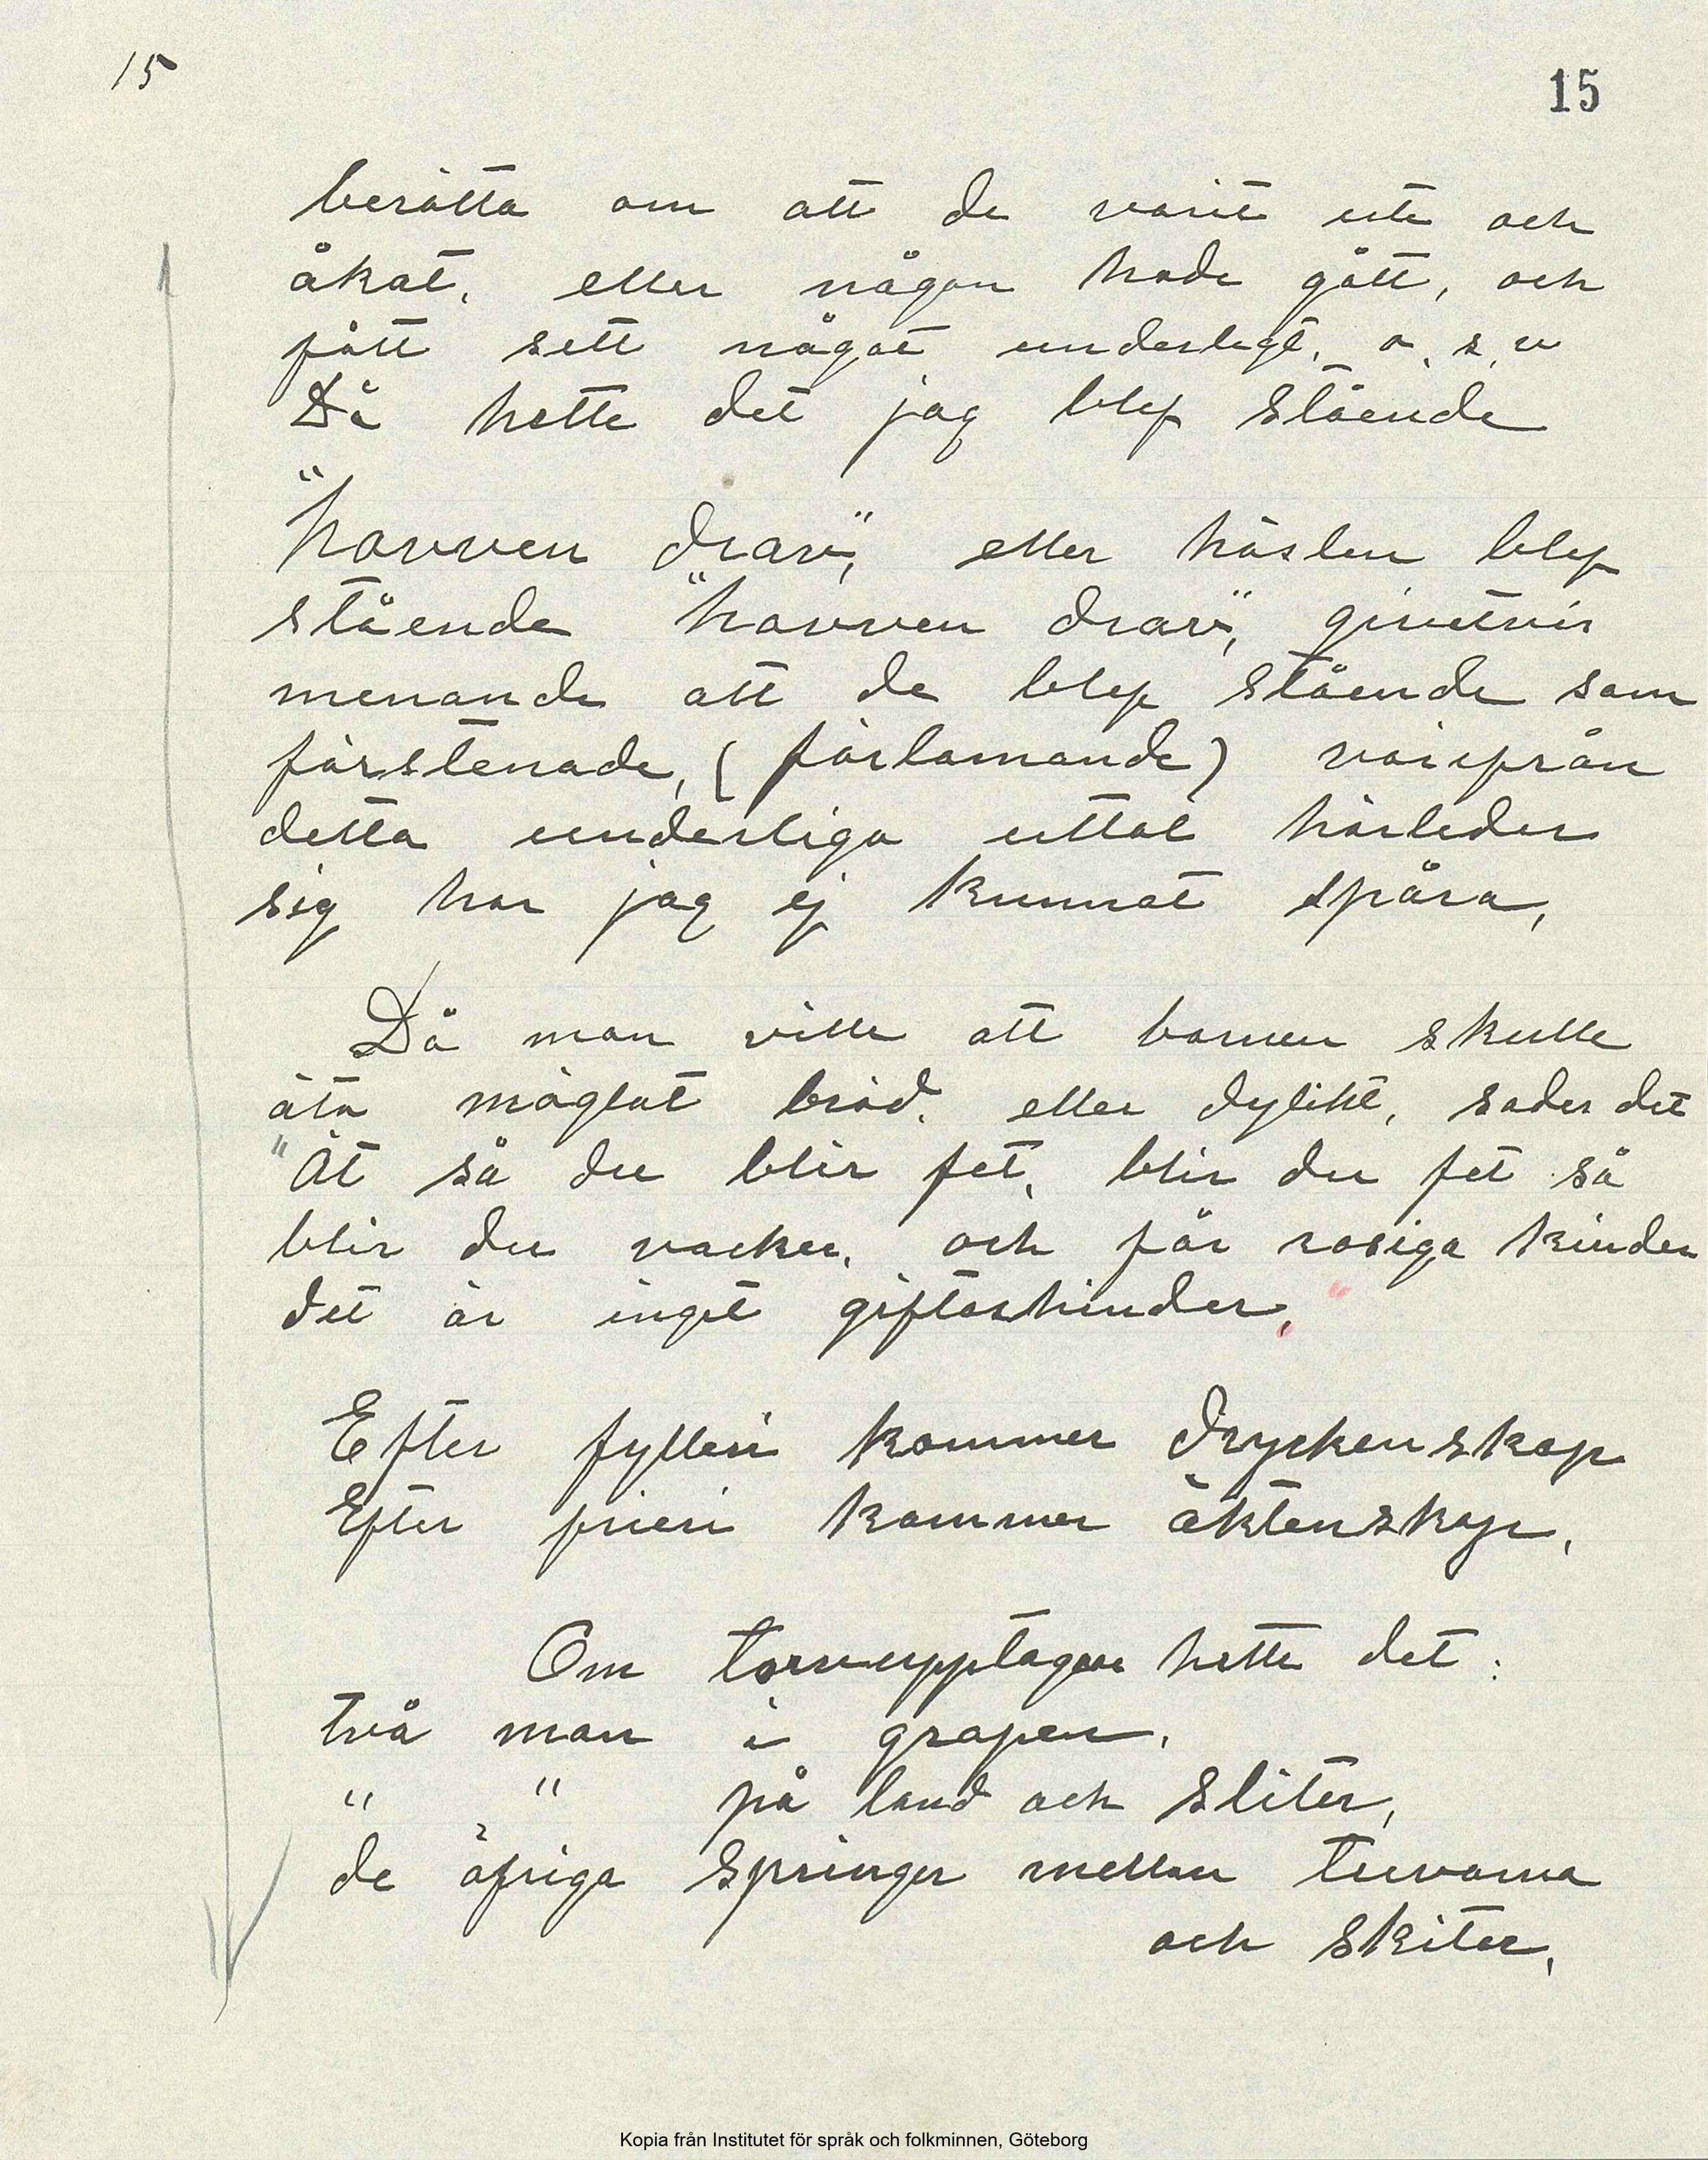 15
15
berätta om att de varit ute och
åkat, eller någon hade gått, och
fått sett något underligt, o, s, v
Då hette det jag blef stående
"havven drav", eller hästen blef
stående "havven drav", givetvis
menande att de blef stående som
förstenade, (förlamande) varifrån
detta underliga uttal härleder
sig har jag ej kunnat spåra,
Då man ville att barnen skulle
äta möglat bröd, eller dylikt, sades det
"Ät så du blir fet, blir du fet så
blir du vacker, och får rosiga kinder
det är inget giftashinder,"
Efter fylleri kommer dryckenskap
Efter frieri kommer äktenskap,
Om torvupptagare hette det:
två man i grapen,
" " på land och sliter,
de öfriga springer mellan tuvorna
och skiter,
Kopia från Institutet för språk och folkminnen, Göteborg